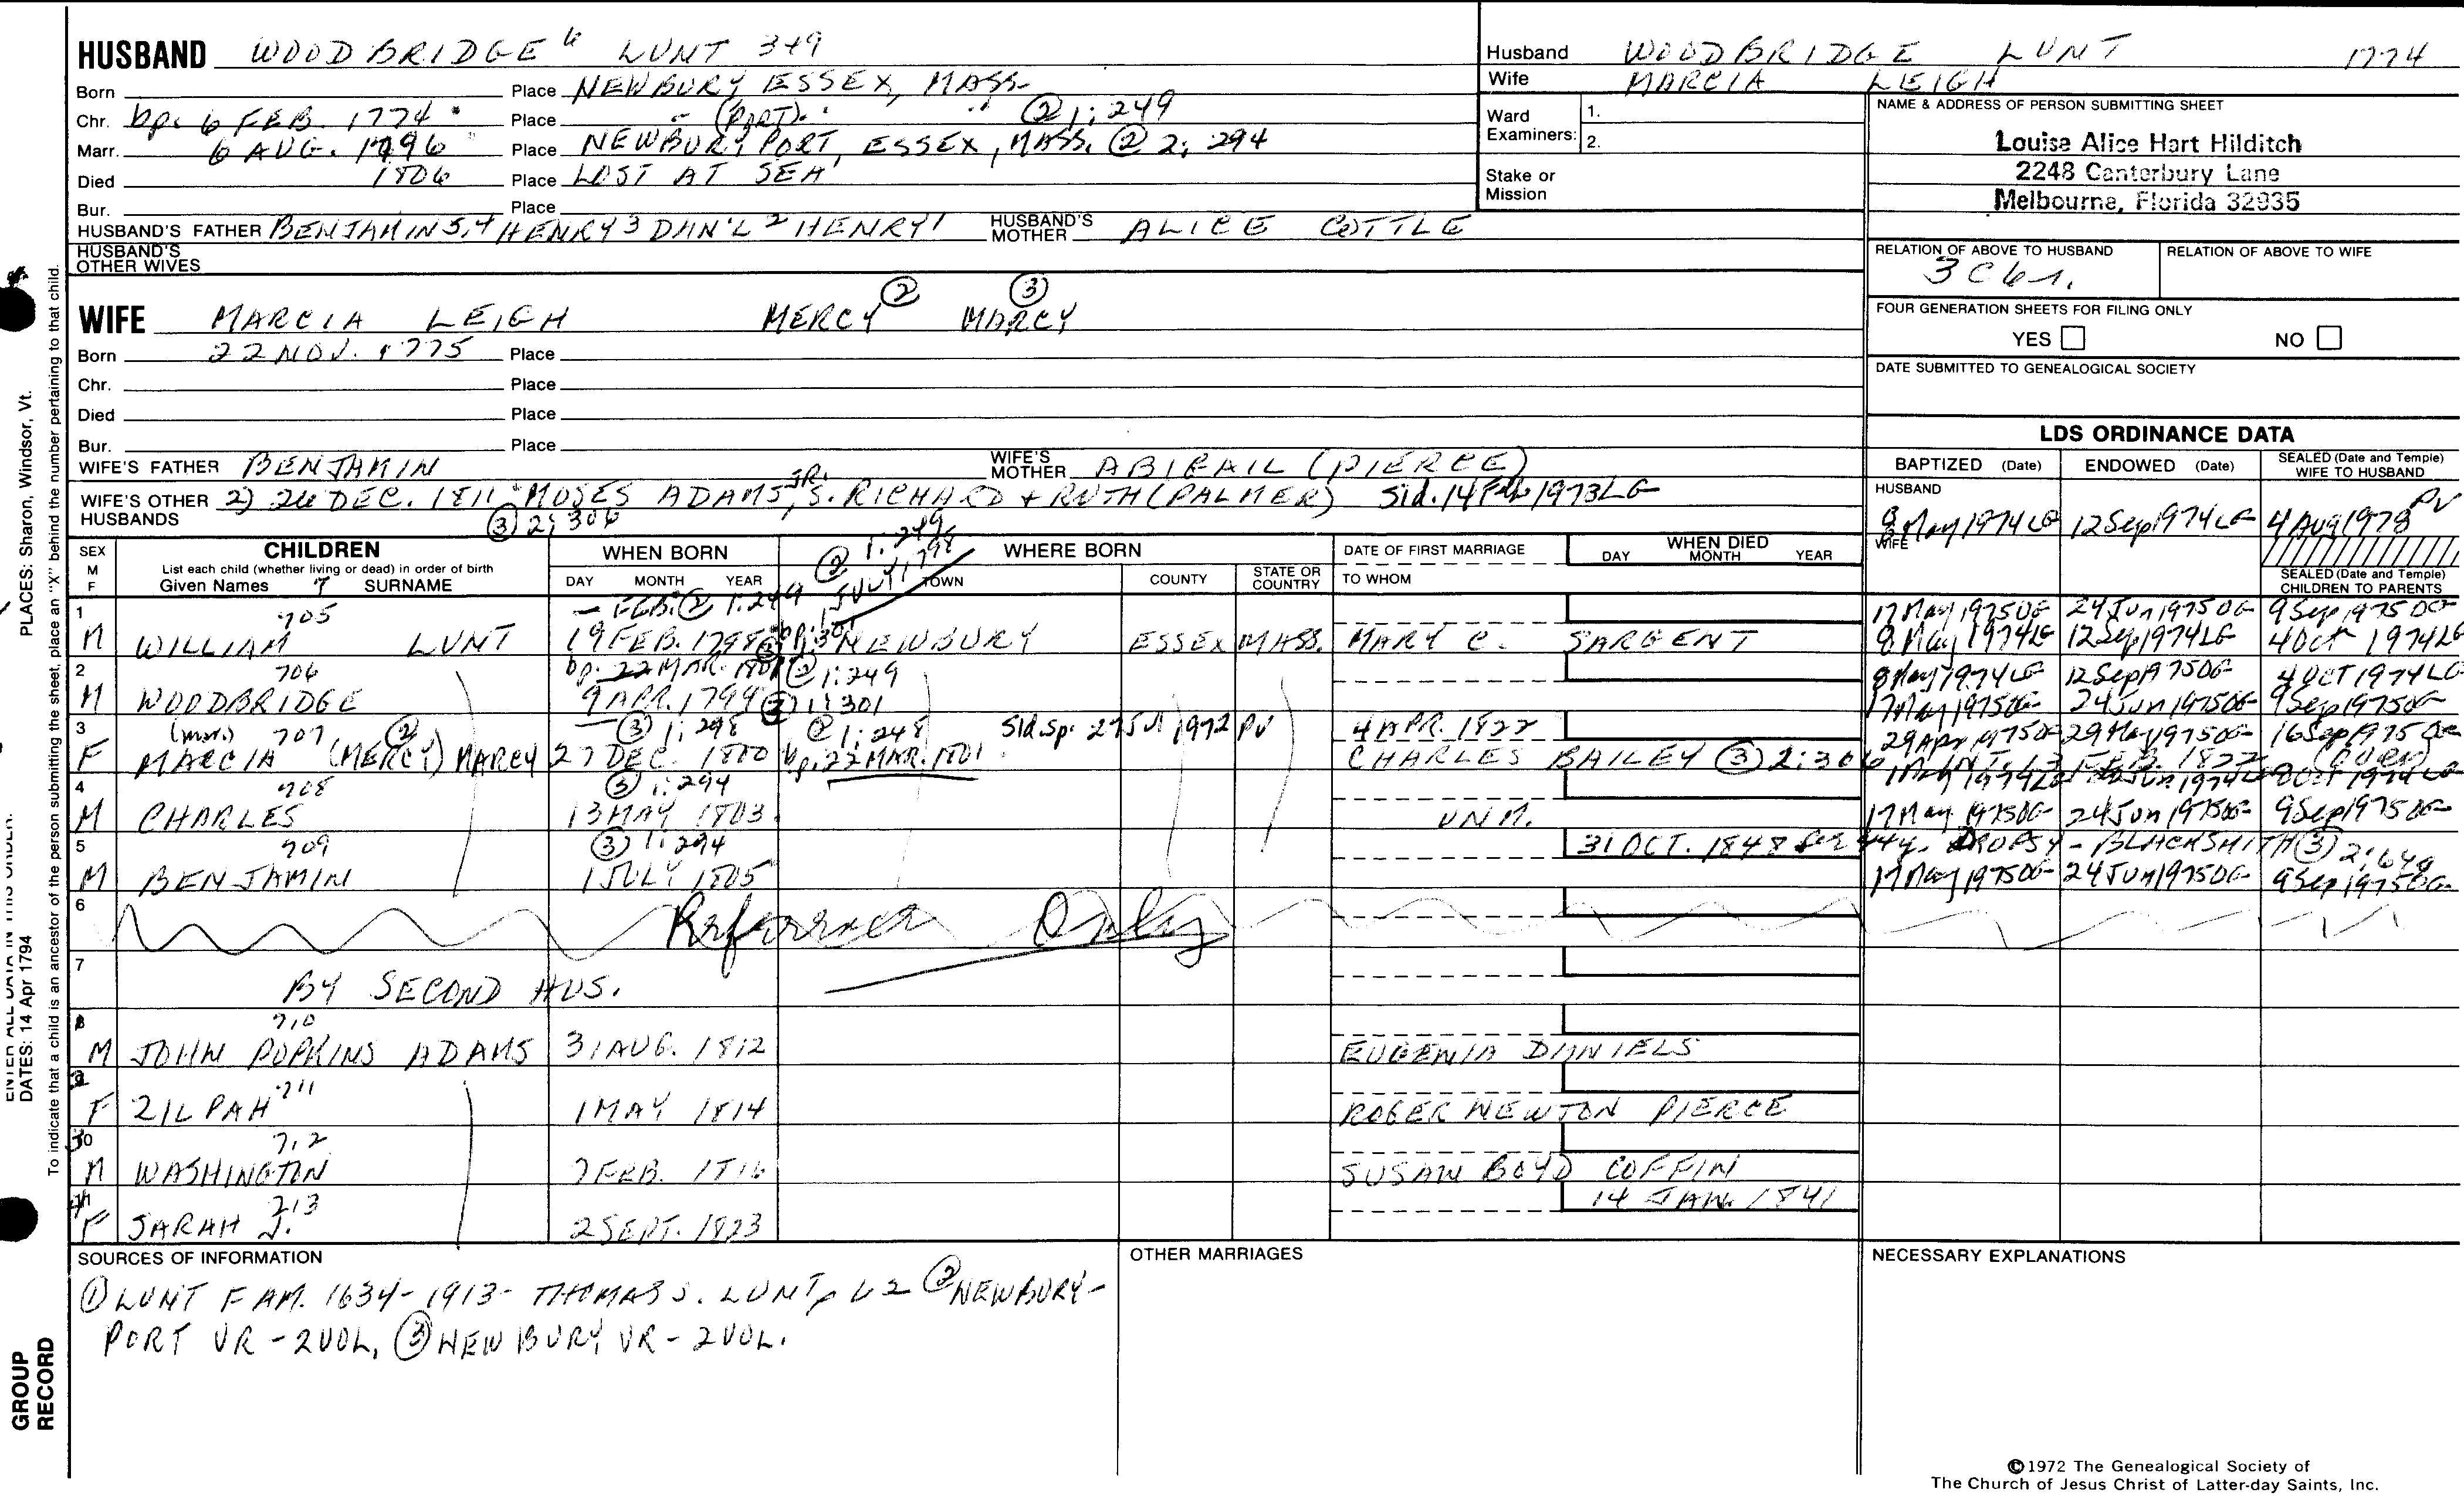 HUSBAND WOODBRIDGE 6 LUNT 349
Born Place NEWBURY ESSEX, MASS.
Chr. bp. 6 FEB. 1774 Place " (PORT). " ② 1:249
Marr. 6 AUG. 1796 Place NEWBURYPORT, ESSEX, MASS. ② 2: 294
Died 1806 Place LOST AT SEA
Bur. Place
HUSBAND'S FATHER BENJAMIN 5,4 HENRY 3 DAN'L 2 HENRY 1 HUSBAND'S MOTHER ALICE COTTLE
HUSBAND'S OTHER WIVES
Husband WOODBRIDGE LUNT 1774
Wife MARCIA LEIGH
Ward Examiners: 1.
2.
Stake or Mission
NAME & ADDRESS OF PERSON SUBMITTING SHEET
Louise Alice Hart Hilditch
2248 Canterbury Lane
Melbourne, Florida 32935
RELATION OF ABOVE TO HUSBAND RELATION OF ABOVE TO WIFE
FOUR GENERATION SHEETS FOR FILING ONLY
YES NO
DATE SUBMITTED TO GENEALOGICAL SOCIETY
② ③
WIFE MARCIA LEIGH MERCY MARCY
Born 22 NOV. 1775 Place
Chr. Place
Died Place
Bur. Place
WIFE'S FATHER BENJAMIN WIFE'S MOTHER ABIGAIL (PIERCE)
WIFE'S OTHER HUSBANDS 2) 26 DEC. 1811 MOSES ADAMS, JR. S. RICHARD + RUTH (PALMER) Sld. 14 Feb 1973 LG
③ 2: 306
LDS ORDINANCE DATA
BAPTIZED (Date) ENDOWED (Date) SEALED (Date and Temple) WIFE TO HUSBAND
HUSBAND
8 May 1974 LG 12 Sep 1974 LG 4 Aug 1978 PV
WIFE
SEALED (Date and Temple) CHILDREN TO PARENTS
SEX M F
CHILDREN
List each child (whether living or dead) in order of birth
Given Names 7 SURNAME
WHEN BORN
DAY MONTH YEAR
② 1:249
JULY 1798
WHERE BORN
TOWN COUNTY STATE OR COUNTRY
DATE OF FIRST MARRIAGE
TO WHOM
WHEN DIED
DAY MONTH YEAR
1 705 – FEB. ② 1:249 17 May 1975 OG 24 Jun 1975 OG 9 Sep 1975 OG
M WILLIAM LUNT 19 FEB. 1798 NEWBURY ESSEX MASS. MARY C. SARGENT 8 May 1974 LG 12 Sep 1974 LG 4 Oct 1974 LG
2 706 bp. 22 MAR. 1801 ② 1:249 8 May 1974 LG 12 Sep 1975 OG 4 OCT 1974 LG
M WOODBRIDGE 9 APR. 1799 ③ 1:301 17 May 1975 OG 24 Jun 1975 OG 9 Sep 1975 OG
3 707 ② ③ 1:298 ② 1:248 Sld. Sp. 27 1972 PV 4 APR. 1822 29 Apr 1975 OG 29 May 1975 OG 16 Sep 1975 OG
F MARCIA (MERCY) MARCY 27 DEC. 1800 bp. 22 MAR. 1801 CHARLES BAILEY ③ 2:306 INT. 13 FEB. 1822
4 708 ③ 1:294
M CHARLES 13 MAY 1803 UNM. 17 May 1975 OG 24 Jun 1975 OG 9 Sep 1975 OG
5 709 ③ 1:294 31 OCT. 1848 44y. DROPSY – BLACKSMITH ③ 2:640
M BENJAMIN 1 JULY 1805 17 May 1975 OG 24 Jun 1975 OG 9 Sep 1975 OG
6 Reference Only
7 BY SECOND HUS.
8 710
M JOHN POPKINS ADAMS 31 AUG. 1812 EUGENIA DANIELS
9 711
F ZILPAH 1 MAY 1814 ROGER NEWTON PIERCE
10 712
M WASHINGTON 7 FEB. 1816 SUSAN BOYD COFFIN
11 713 14 JAN. 1841
F SARAH J. 2 SEPT. 1823
SOURCES OF INFORMATION
① LUNT FAM. 1634-1913- THOMAS S. LUNT, 62 ② NEWBURY-
PORT VR - 2 VOL, ③ NEWBURY VR - 2 VOL.
OTHER MARRIAGES
NECESSARY EXPLANATIONS
©1972 The Genealogical Society of
The Church of Jesus Christ of Latter-day Saints, Inc.
PLACES: Sharon, Windsor, Vt.
ENTER ALL DATA IN THIS ORDER:
DATES: 14 Apr 1794
To indicate that a child is an ancestor of the person submitting the sheet, place an "X" behind the number pertaining to that child.
GROUP
RECORD